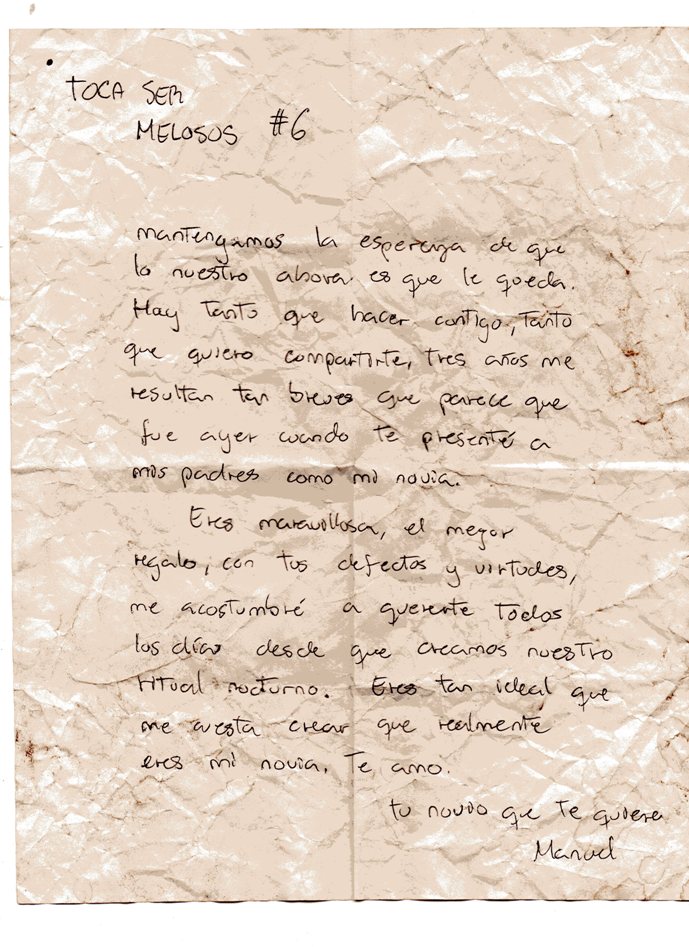 TOCA SER
MELOSOS #6
mantengamos la esperanza de que
lo nuestro ahora es que le queda.
Hay tanto que hacer contigo, tanto
que quiero compartirte, tres años me
resultan tan breves que parece que
fue ayer cuando te presenté a
mis padres como mi novia.
Eres maravillosa, el mejor
regalo, con tus defectos y virtudes,
me acostumbré a quererte todos
los días desde que creamos nuestro
ritual nocturno. Eres tan ideal que
me cuesta crear que realmente
eres mi novia. Te amo.
tu novio que te quiere
Manuel